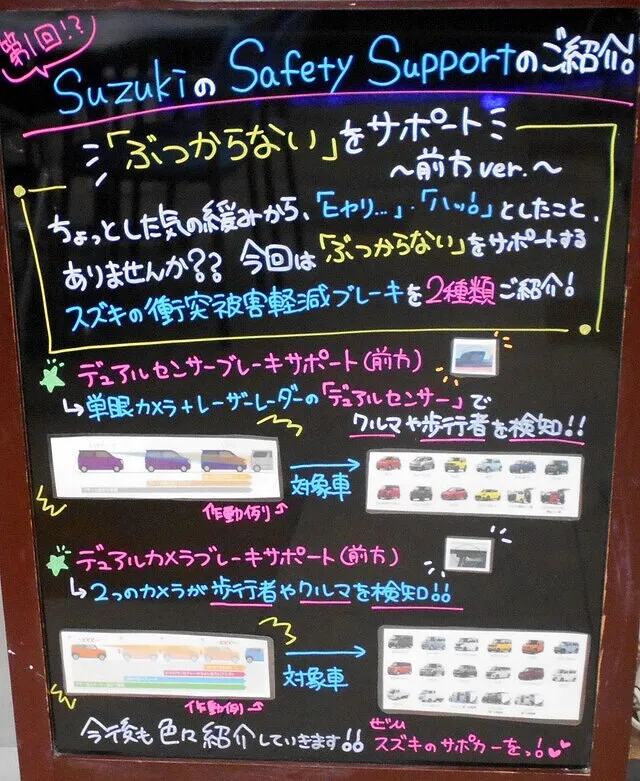 第1回!?
Suzukiの Safety Supportのご紹介!
「ぶつからない」をサポート
～前方 ver.～
ちょっとした気の緩みから、「ヒヤリ…」・「ハッ!」としたこと、
ありませんか?? 今回は「ぶつからない」をサポートする
スズキの衝突被害軽減ブレーキを2種類ご紹介!
デュアルセンサーブレーキサポート(前方)
↳単眼カメラ+レーザーレーダーの「デュアルセンサー」で
クルマや歩行者を検知!!
対象車
作動例
デュアルカメラブレーキサポート(前方)
↳2つのカメラが歩行者やクルマを検知!!
対象車
作動例
今後も色々紹介していきます!! ぜひ
スズキのサポカーをっ!